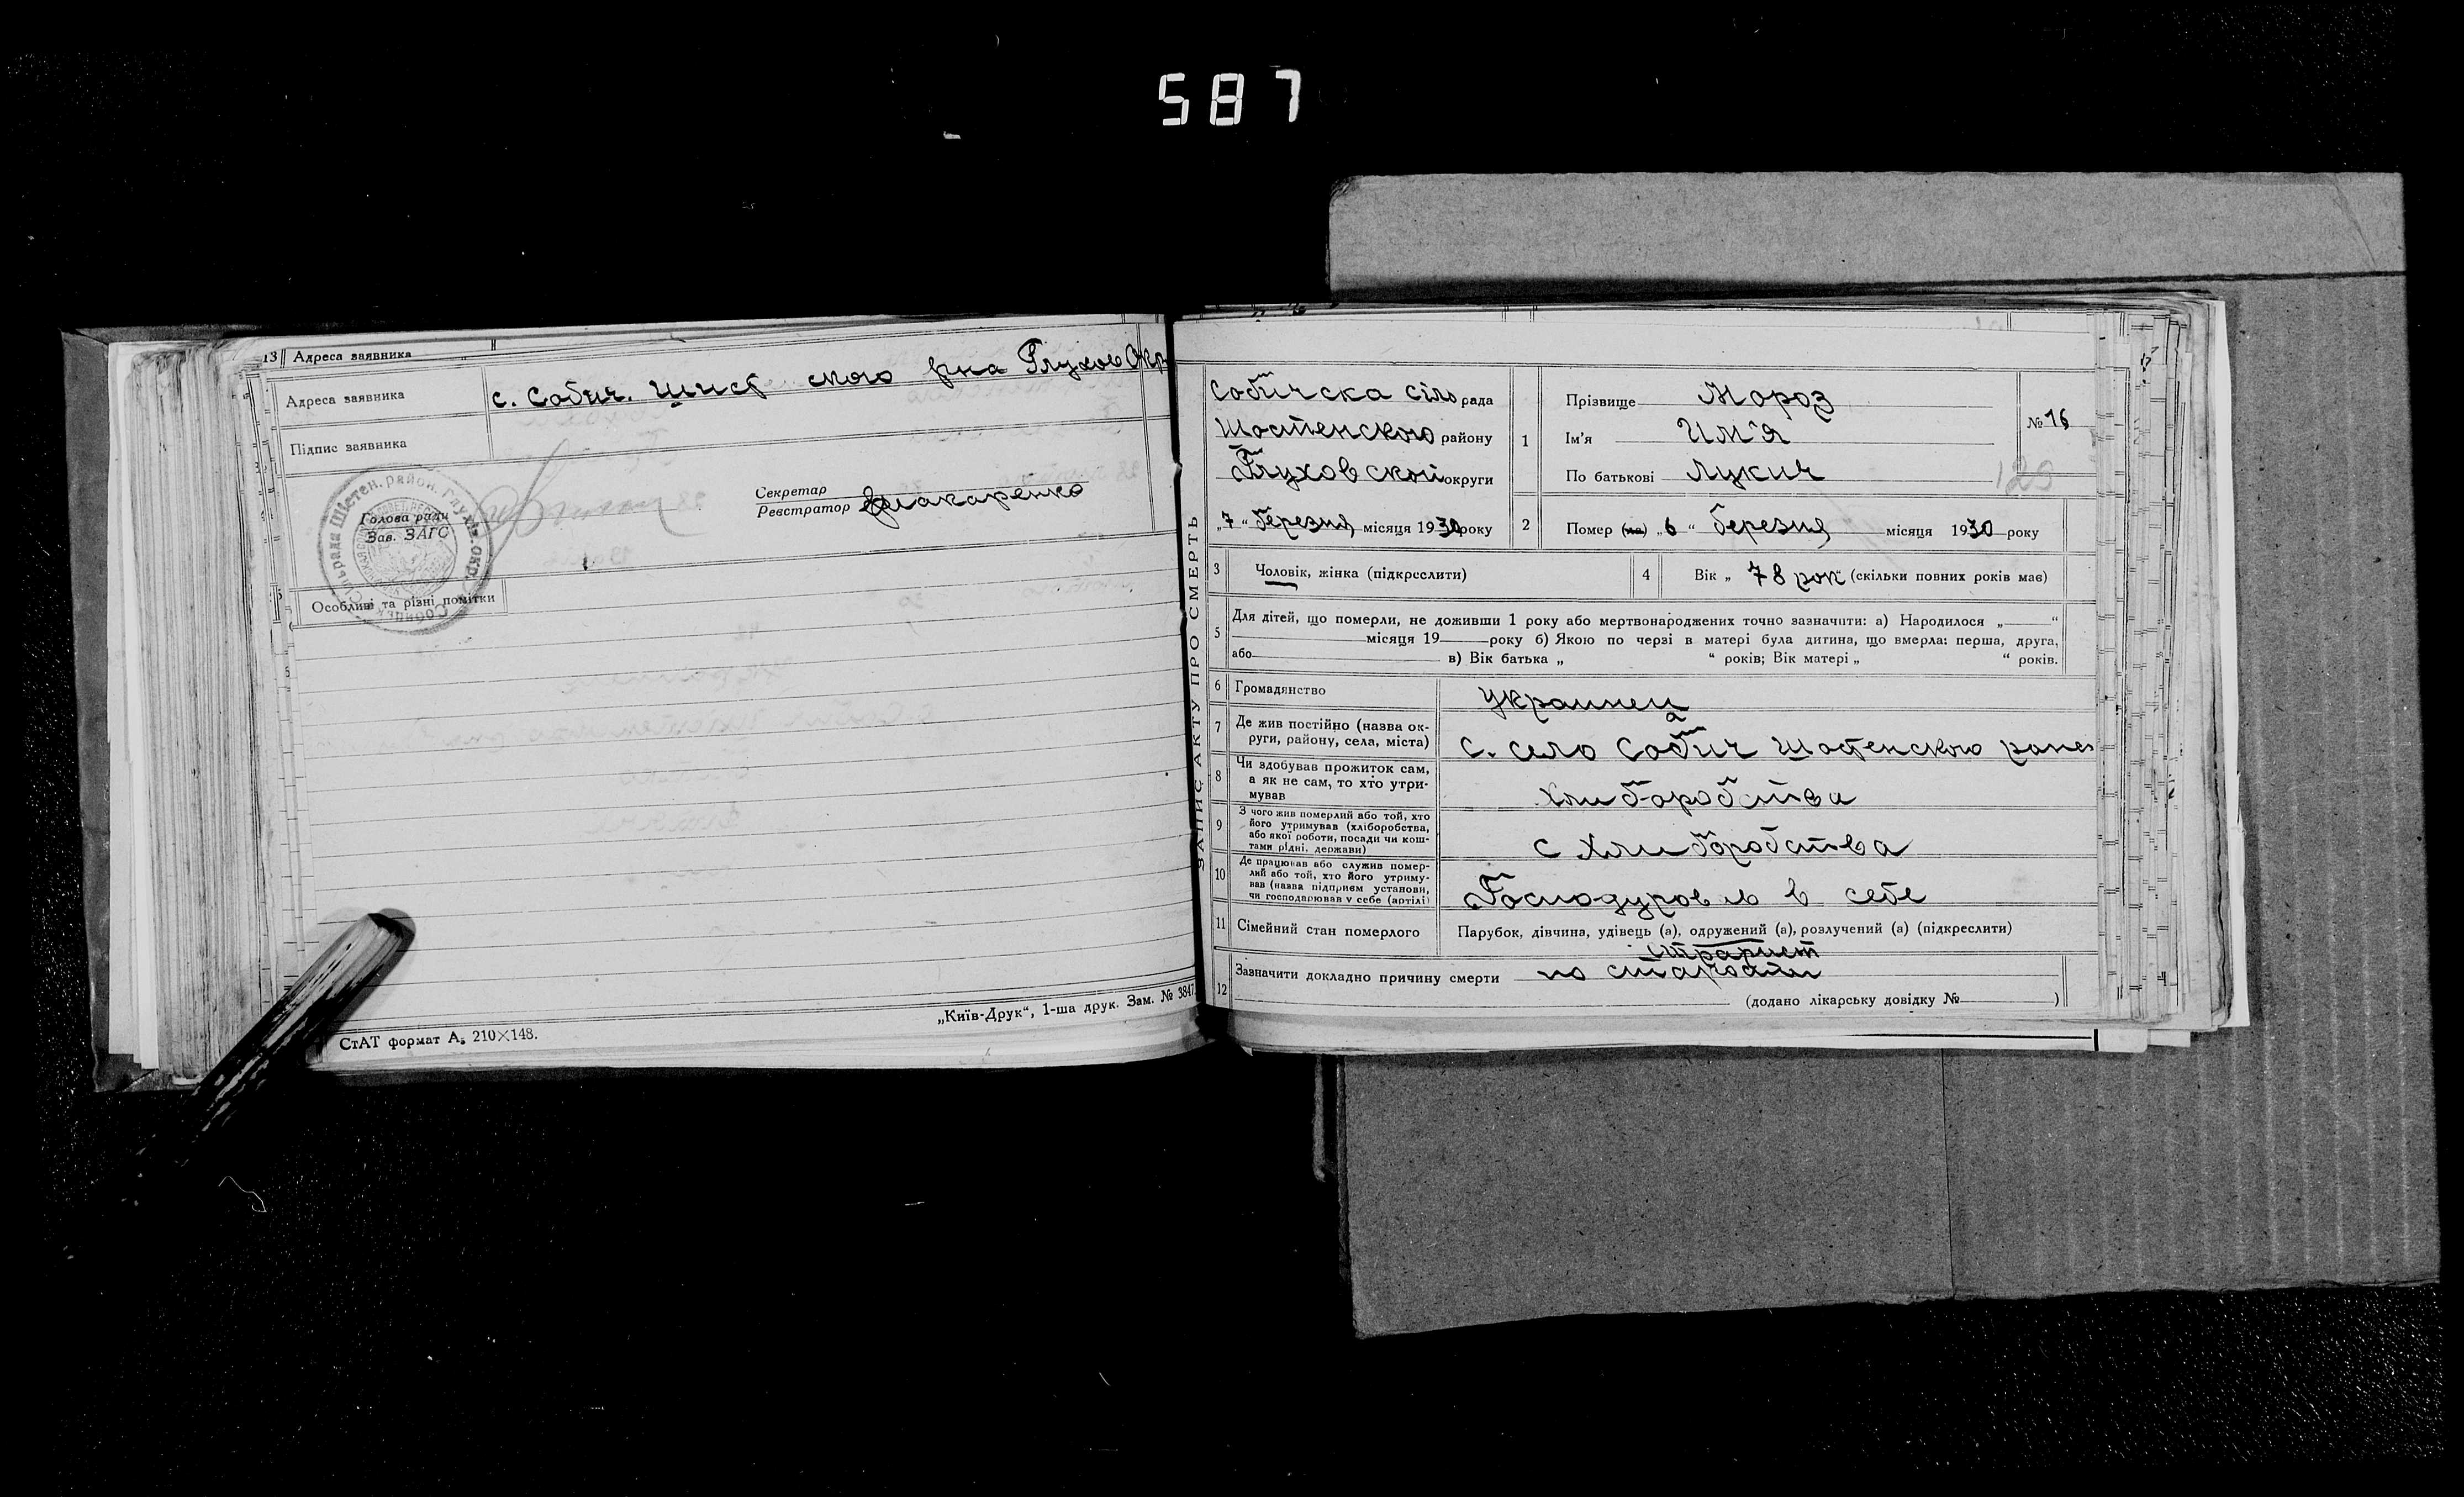 587
13 Адреса заявника
Адреса заявника с. Собич. Шист ского рна Глухов Окр
Підпис заявника
Голова ради
Зав. ЗАГС
Секретар
Реєстратор Макаренко
Особливі та різні помітки
СтАТ формат А5 210×148.
„Київ-Друк“, 1-ша друк. Зам. № 3847.
ЗАПИС АКТУ ПРО СМЕРТЬ
Собичска сільрада
Шостенского району
Глуховской округи
„7“ березня місяця 1930 року
1 Прізвище Мороз
Ім'я Им'я
По батькові Лукич
№ 16
129
2 Помер (ла) „6“ березня місяця 1930 року
3 Чоловік, жінка (підкреслити)
4 Вік „78 рок“ (скільки повних років має)
5 Для дітей, що померли, не доживши 1 року або мертвонароджених точно зазначити: а) Народилося „ “
місяця 19 року б) Якою по черзі в матері була дитина, що вмерла: перша, друга,
або в) Вік батька „ “ років; Вік матері „ “ років.
6 Громадянство украинец
7 Де жив постійно (назва ок-
руги, району, села, міста) с. село Собич Шостенского
8 Чи здобував прожиток сам,
а як не сам, то хто утри-
мував хлиборобства
9 З чого жив померлий або той, хто
його утримував (хліборобства,
або якої роботи, посади чи кош-
тами рідні, держави) с хлиборобства
10 Де працював або служив помер-
лий або той, хто його утриму-
вав (назва підприєм установи,
чи господарював у себе (артілі) Господуровав в себе
11 Сімейний стан померлого Парубок, дівчина, удівець (а), одружений (а), розлучений (а) (підкреслити)
12 Зазначити докладно причину смерти по старости
(додано лікарську довідку № )